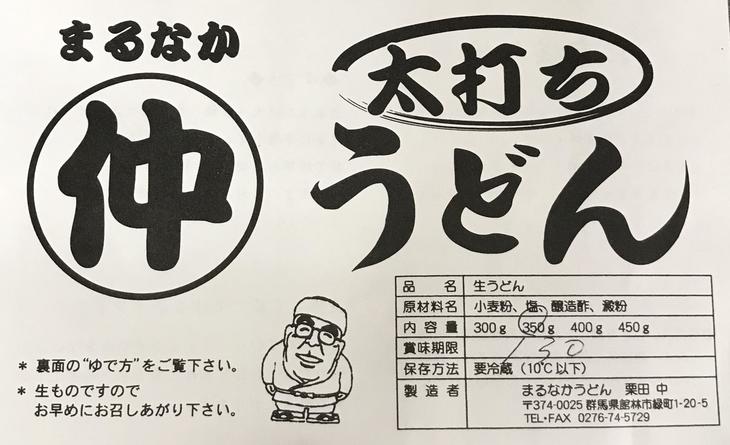 まるなか
仲
太打ち
うどん
品名 生うどん
原材料名 小麦粉、塩、醸造酢、澱粉
内容量 300g 350g 400g 450g
賞味期限 130
保存方法 要冷蔵(10℃以下)
製造者 まるなかうどん 栗田 中
〒374-0025 群馬県館林市緑町1-20-5
TEL・FAX 0276-74-5729
* 裏面の“ゆで方”をご覧下さい。
* 生ものですので
お早めにお召しあがり下さい。